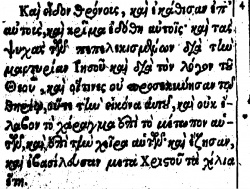 Καὶ εἶδον θρόνοις, καὶ ἐκάθισαν ἐπ'
αὐτοὶς, καὶ κρίμα ἐδόθη αὐτοῖς· καὶ τὰς
ψυχὰς τῶν πεπελεκισμένων διὰ τὴν
μαρτυρίαν Ἰησοῦ καὶ διὰ τὸν λόγον τοῦ
Θεοῦ, καὶ οἵτινες οὐ προσεκύνησαν τὸ
θηρίον, οὔτε τὴν εἰκόνα αὐτοῦ, καὶ οὐκ ἔ-
λαβον τὸ χάραγμα ὑπὶ τὸ μέτωπον αὐ-
τῶν, καὶ ὑπὶ τὴν χεῖρα αὐτῶν· καὶ ἔζησαν,
καὶ ἐβασίλευσαν μετὰ Χριστοῦ τὰ χίλια
ἔτη.